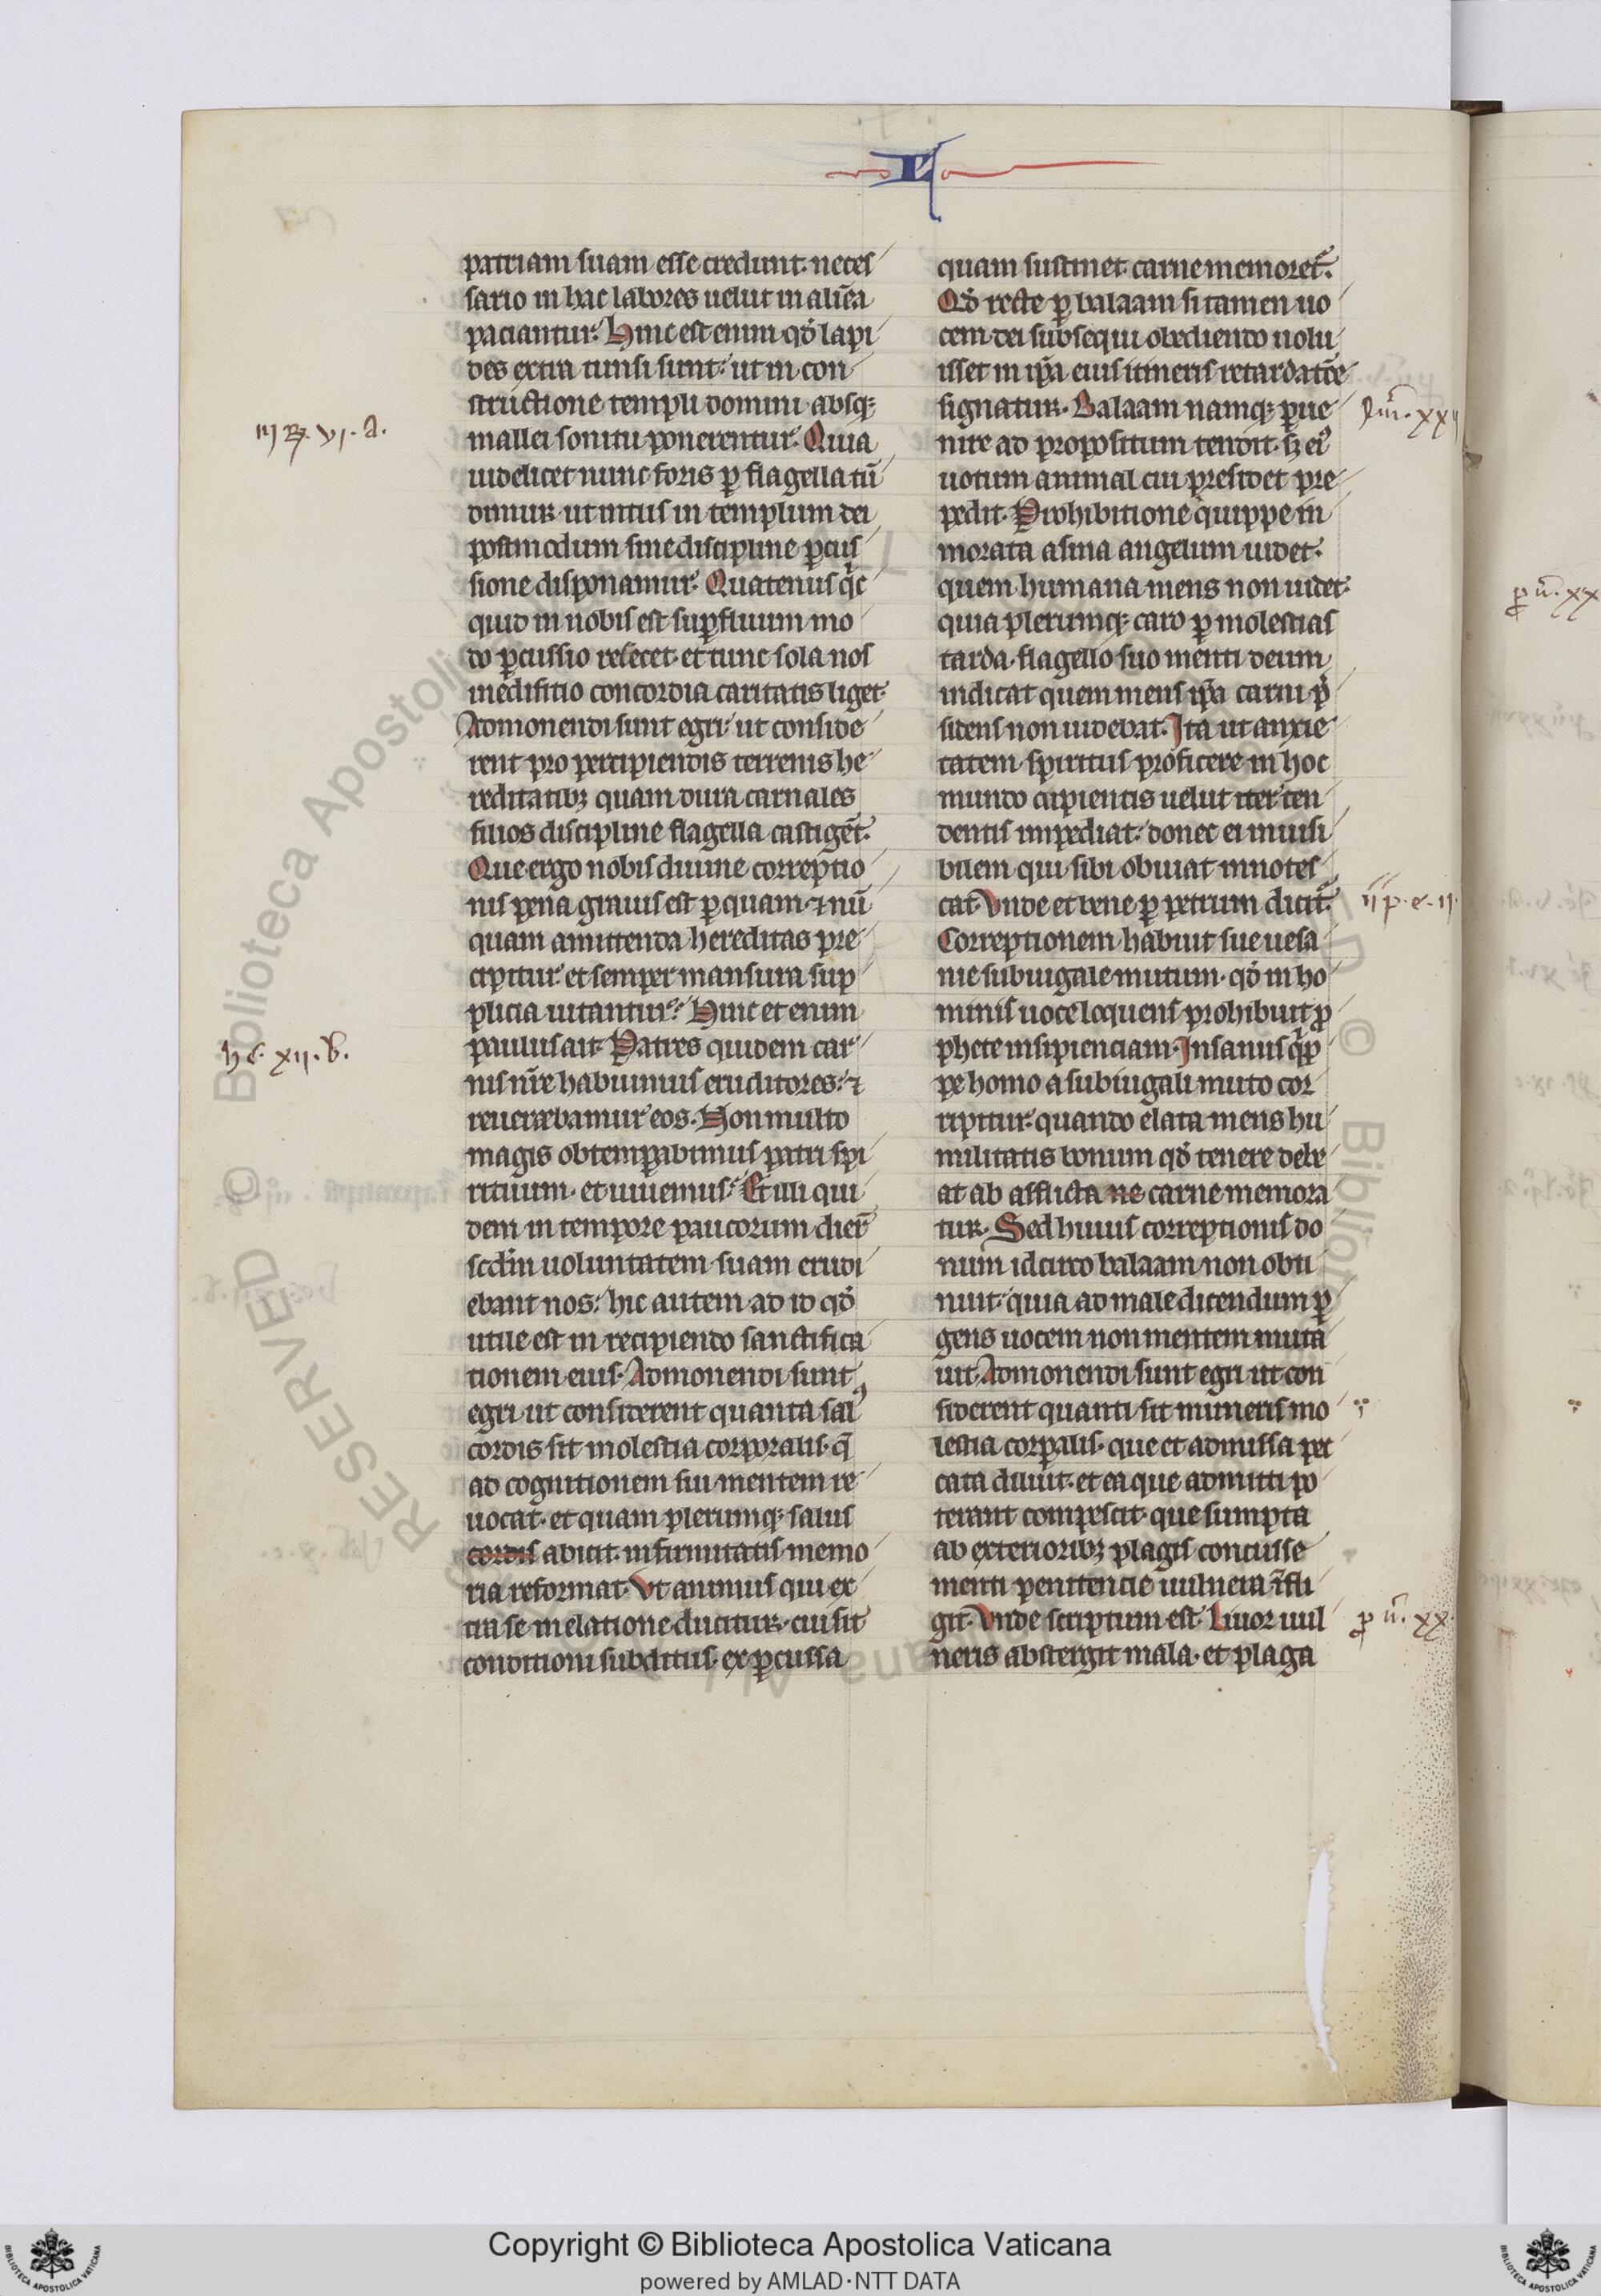 patriam suam esse credunt. neces
sario in hac labores uelut in aliēa
paciantur. Hinc est enim qđ lapi
des extra tunsi sunt. ut in con
structione templi domini absq;
iij R. vj. a.
mallei sonitu ponerentur. Quia
uidelicet nunc foris ꝑ flagella tū
dimur ut intus in templum dei
postmodum sine discipline ꝑcus
sione disponamur. Quatenus qͥc
quid in nobis est suꝑfluum mo
do ꝑcussio resecet. et tunc sola nos
in edifitio concordia caritatis liget.
Admonendi sunt egri. ut conside
rent pro percipiendis terrenis he
reditatibꝫ quam dura carnales
filios discipline flagella castigēt.
Que ergo nobis diuine correptio
nis pena grauis est ꝑ quam ⁊ nū
quam amittenda hereditas pre
cipitur. et semper mansura sup
plicia uitantur. Hinc et enim
hē. xij. b.
paulus ait. Patres quidem car
nis nr̄e habuimus eruditores. ⁊
reuerebamur eos. Non multo
magis obtemꝑabimus patri spi
rituum. et uiuemus. Et illi qui
dem in tempore paucorum dieꝝ
scdm̄ uoluntatem suam erudi
ebant nos. hic autem ad id qđ
utile est in recipiendo sanctifica
tionem eius. Admonendi sunt
egri ut considerent quanta salꝰ
cordis sit molestia corporalis. q̄
ad cognitionem sui mentem re
uocat. et quam plerumq; salus
cordis abicit. infirmitatis memo
ria reformat. Vt animus qui ex
tra se in elatione ducitur. cui sit
conditioni subditus. ex ꝑcussa
quam sustinet carne memoret̄.
Qđ recte ꝑ balaam si tamen uo
cem dei subsequi obediendo uolu
isset in ip̄a eius itineris retardatōe
signatur. Balaam namq; ꝑue
nu̅. xxij
nire ad propositum tendit. sꝫ eiꝰ
uotum animal cui presidet pre
pedit. Prohibitione quippe in
morata asina angelum uidet.
quem humana mens non uidet.
quia plerumq; caro ꝑ molestias
tarda. flagello suo menti deum
indicat quem mens ip̄a carni p̄
sidens non uidebat. Ita ut anxie
tatem spiritus proficere in hoc
mundo cupientis uelut iter ten
dentis impediat. donec ei inuisi
bilem qui sibi obuiat innotes
cat. Vnde et bene ꝑ petrum dicit̄.
ij p. e. ij.
Correptionem habuit sue uesa
nie subiugale mutum. qđ in ho
minis uoce loquens prohibuit ꝓ
phete insipienciam. Insanus qͥp
pe homo a subiugali muto cor
ripitur. quando elata mens hu
militatis bonum qđ tenere debe
at ab afflicta ne carne memora
tur. Sed huius correptionis do
num idcirco balaam non obti
nuit. quia ad maledicendum ꝑ
gens uocem non mentem muta
uit. Admonendi sunt egri ut con
siderent quanti sit muneris mo
lestia corꝑalis. que et admissa pec
cata diluit. et ea que admitti po
terant compescit. que sumpta
ab exterioribꝫ plagis concusse
menti penitencie uulnera īfli
git. Vnde scriptum est. Liuor uul
ꝓ ū. xx.
neris abstergit mala. et plaga
ꝓ ū. xx
Copyright © Biblioteca Apostolica Vaticana
powered by AMLAD·NTT DATA